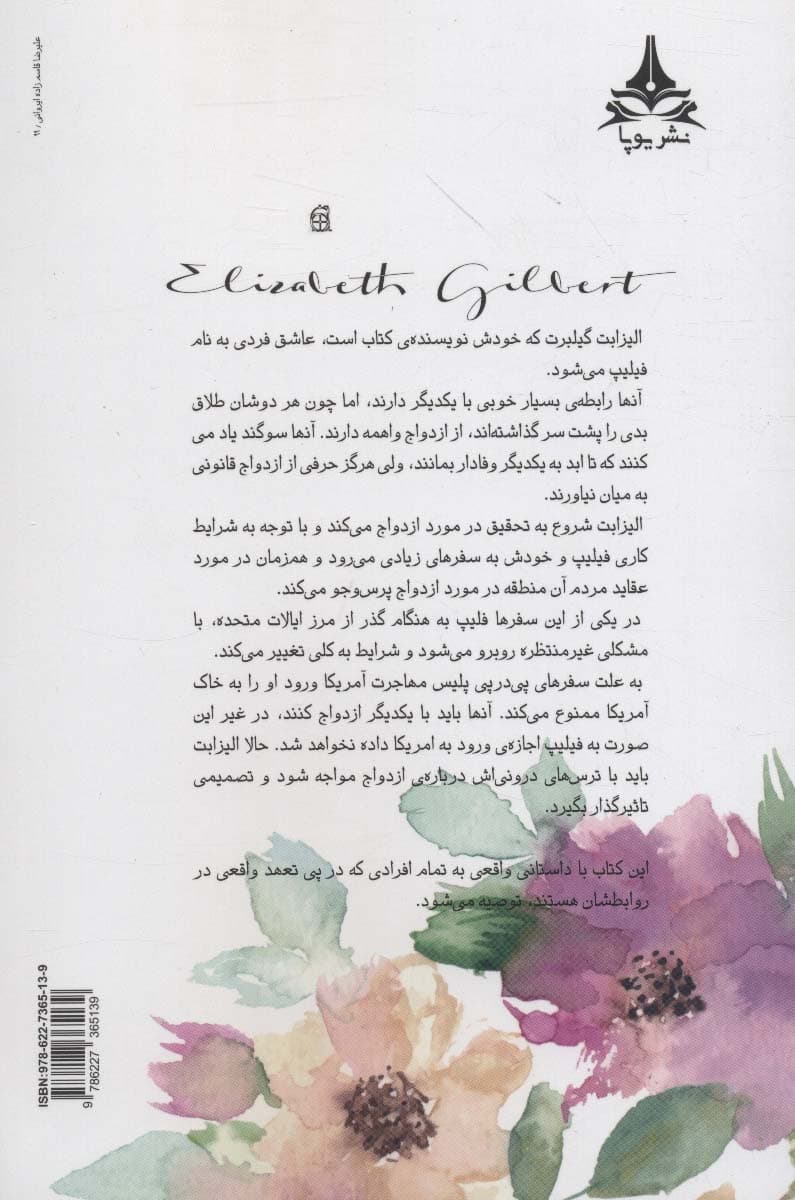 علیرضا قاسم زاده ایروانی / ۹۹
نشر یوپا
Elizabeth Gilbert
الیزابت گیلبرت که خودش نویسنده‌ی کتاب است، عاشق فردی به نام
فیلیپ می‌شود.
آنها رابطه‌ی بسیار خوبی با یکدیگر دارند، اما چون هر دوشان طلاق
بدی را پشت سر گذاشته‌اند، از ازدواج واهمه دارند. آنها سوگند یاد می
کنند که تا ابد به یکدیگر وفادار بمانند، ولی هرگز حرفی از ازدواج قانونی
به میان نیاورند.
الیزابت شروع به تحقیق در مورد ازدواج می‌کند و با توجه به شرایط
کاری فیلیپ و خودش به سفرهای زیادی می‌رود و همزمان در مورد
عقاید مردم آن منطقه در مورد ازدواج پرس‌وجو می‌کند.
در یکی از این سفرها فلیپ به هنگام گذر از مرز ایالات متحده، با
مشکلی غیرمنتظره روبرو می‌شود و شرایط به کلی تغییر می‌کند.
به علت سفرهای پی‌درپی پلیس مهاجرت آمریکا ورود او را به خاک
آمریکا ممنوع می‌کند. آنها باید با یکدیگر ازدواج کنند، در غیر این
صورت به فیلیپ اجازه‌ی ورود به امریکا داده نخواهد شد. حالا الیزابت
باید با ترس‌های درونی‌اش درباره‌ی ازدواج مواجه شود و تصمیمی
تاثیرگذار بگیرد.
این کتاب با داستانی واقعی به تمام افرادی که در پی تعهد واقعی در
روابطشان هستند، توصیه می‌شود.
ISBN:978-622-7365-13-9
9 786227 365139